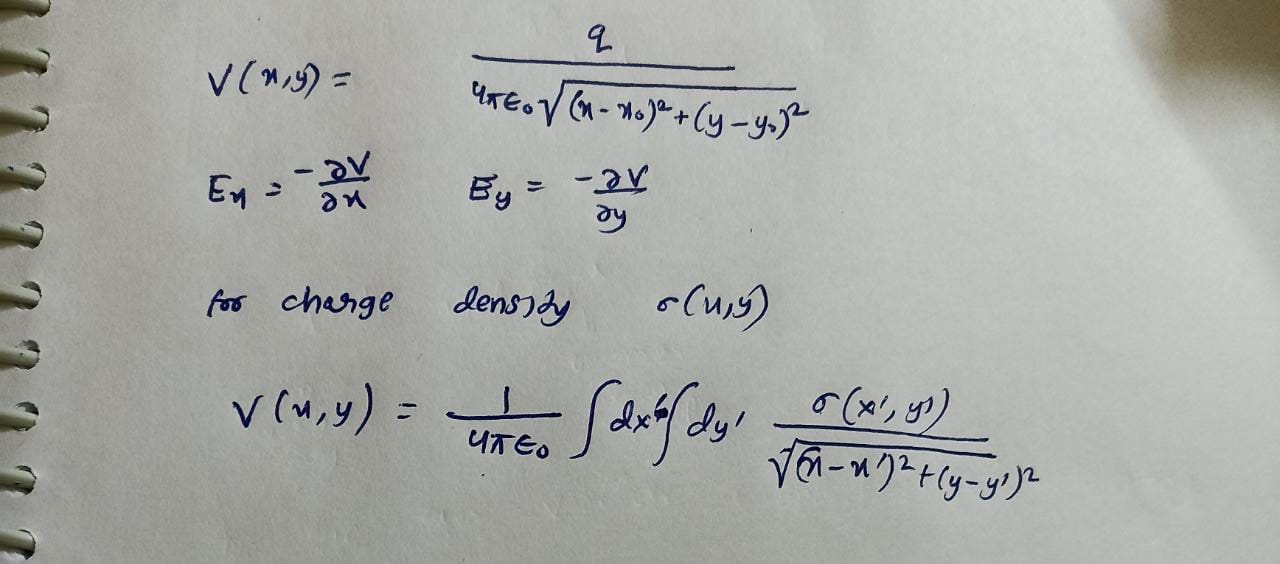 V(x,y) = q / 4πϵ₀√(x-x₀)²+(y-y₀)²
Eₓ = -∂V/∂x    E_y = -∂V/∂y
for charge density σ(x,y)
V(x,y) = 1/4πϵ₀ ∫dx'∫dy' σ(x',y')/√(x-x')²+(y-y')²